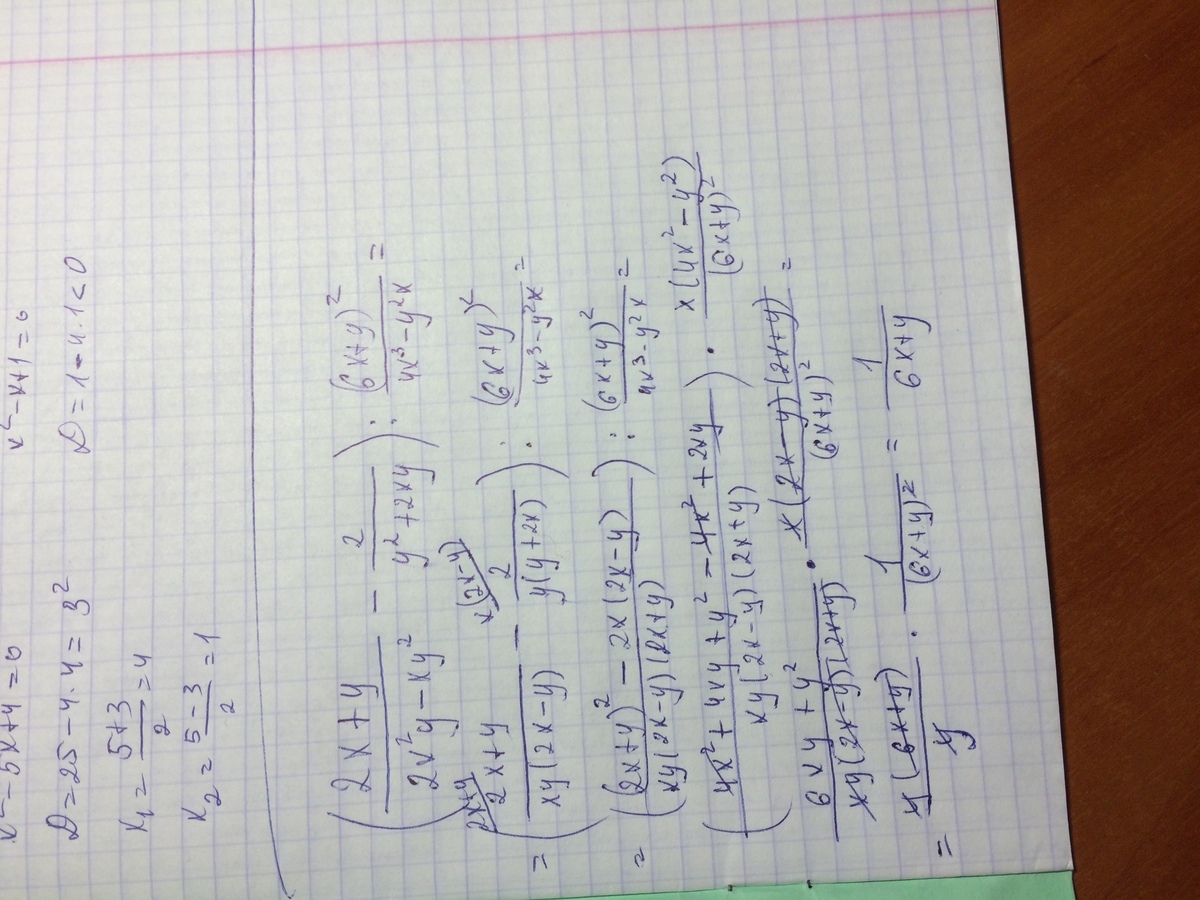 x² - 5x + 4 = 0    x² - x + 1 = 0
D = 25 - 4·4 = 3²    D = 1 - 4·1 < 0
x₁ = (5+3)/2 = 4
x₂ = (5-3)/2 = 1
((2x+y)/(2x²y - xy²) - 2/(y²+2xy)) : (6x+y)²/(4x³-y²x) =
= ((2x+y)/(xy(2x-y)) ^(2x+y) - 2/(y(y+2x)) ^(x(2x-y))) : (6x+y)²/(4x³-y²x) =
= (((2x+y)² - 2x(2x-y))/(xy(2x-y)(2x+y))) : (6x+y)²/(4x³-y²x) =
((4x²+4xy+y²-4x²+2xy)/(xy(2x-y)(2x+y))) · x(4x²-y²)/(6x+y)²
(6xy+y²)/(xy(2x-y)(2x+y)) · x(2x-y)(2x+y)/(6x+y)² =
= y(6x+y)/y · 1/(6x+y)² = 1/(6x+y)